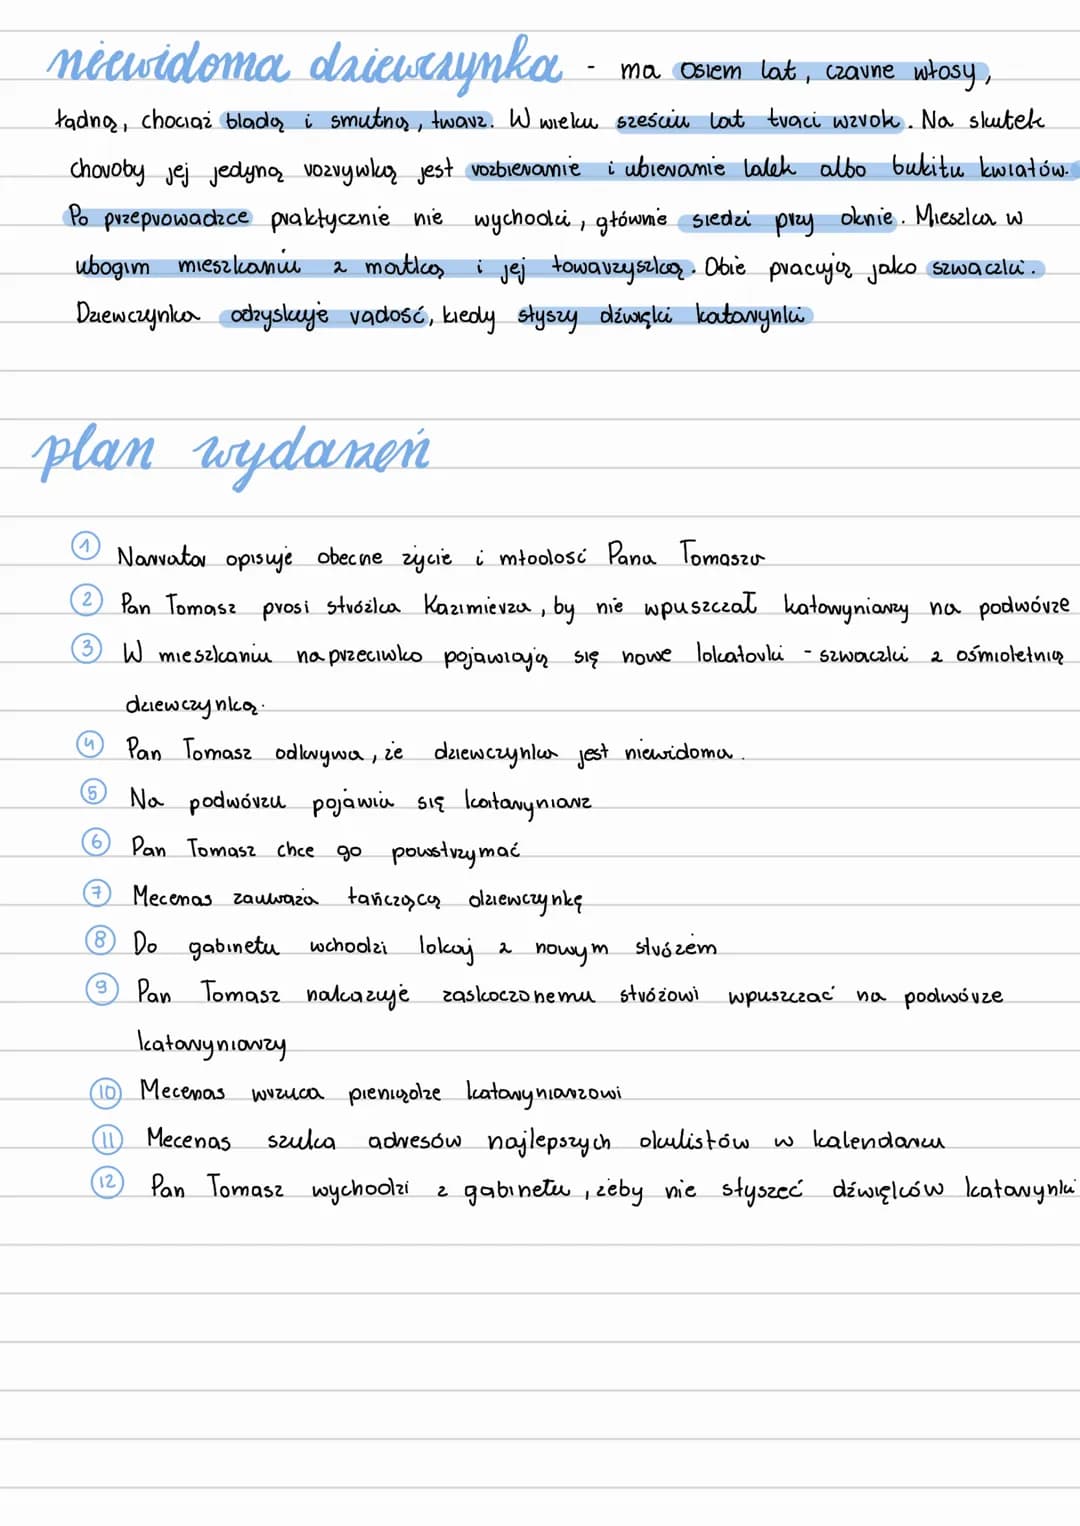 niewidoma dziewczynka - ma osiem lat, czarne włosy,
ładną, chociaż bladą i smutną, twarz. W wieku sześciu lat traci wzrok. Na skutek
choroby jej jedyną rozrywką jest rozbieranie i ubieranie lalek albo bukitu kwiatów.
Po przeprowadzce praktycznie nie wychodzi, głównie siedzi przy oknie. Mieszka w
ubogim mieszkaniu z matką i jej towarzyszką. Obie pracują jako szwaczki.
Dziewczynka odzyskuje radość, kiedy słyszy dźwięki katarynki
plan wydarzeń
1 Narrator opisuje obecne życie i młodość Pana Tomasza
2 Pan Tomasz prosi stróżka Kazimierza, by nie wpuszczał kataryniarzy na podwórze
3 W mieszkaniu naprzeciwko pojawiają się nowe lokatorki - szwaczki z ośmioletnią
dziewczynką.
4 Pan Tomasz odkrywa, że dziewczynka jest niewidoma.
5 Na podwórzu pojawia się kataryniarz
6 Pan Tomasz chce go powstrzymać
7 Mecenas zauważa tańczącą dziewczynkę
8 Do gabinetu wchodzi lokaj z nowym stróżem
9 Pan Tomasz nakazuje zaskoczonemu stróżowi wpuszczać na podwórze
kataryniarzy
10 Mecenas wrzuca pieniądze kataryniarzowi
11 Mecenas szuka adresów najlepszych okulistów w kalendarzu
12 Pan Tomasz wychodzi z gabinetu, żeby nie słyszeć dźwięków katarynki